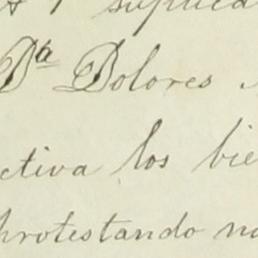 suplica
Dª Dolores
ctiva los bie
protestando no